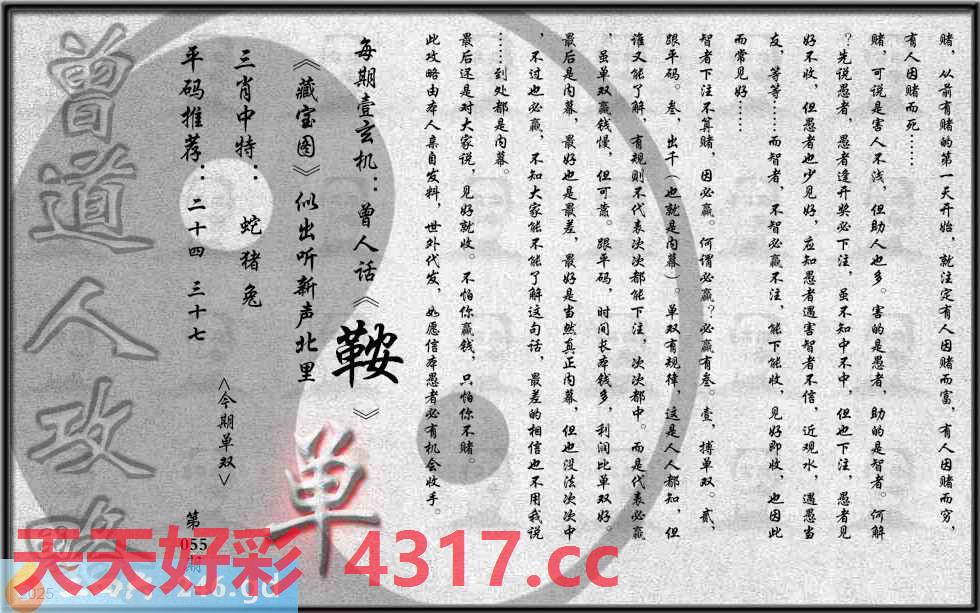 赌，从前有赌的第一天开始，就注定有人因赌而富，有人因赌而穷，
有人因赌而死……
赌，可说是害人不浅，但助人也多。害的是愚者，助的是智者。何解
？先说愚者，愚者逢开奖必下注，虽不知中不中，但也下注，愚者见
好不收，但愚者也少见好，应知愚者遇害智者不信，近观水，遇愚当
友，等等……而智者，不智必赢不注，能下能收，见好即收，也因此
而常见好……
智者下注不算赌，因必赢。何谓必赢？必赢有叁。壹，搏单双。贰，
跟平码。叁，出千（也就是内幕）。单双有规律，这是人人都知，但
谁又能了解，有规则不代表次次都能下注，次次都中。而是代表必赢
，虽单双赢钱慢，但可靠。跟平码，时间长本钱多，利润比单双好。
最后是内幕，最好也是最差，最好是当然真正内幕，但也没法次次中
，不过也必赢，不知大家能不能了解这句话，最差的相信也不用我说
……到处都是内幕。
最后还是对大家说，见好就收。不怕你赢钱，只怕你不赌。
此攻略由本人亲自发料，世外代发，如愿信本愚者必有机会收手。
每期壹玄机：曾人话《鞍》
《藏宝图》似出听新声北里
三肖中特： 蛇 猪 兔
平码推荐：二十四 三十七
<今期单双>
单
第055期
曾道人攻略
天天好彩 4317.cc
2025
246.gd